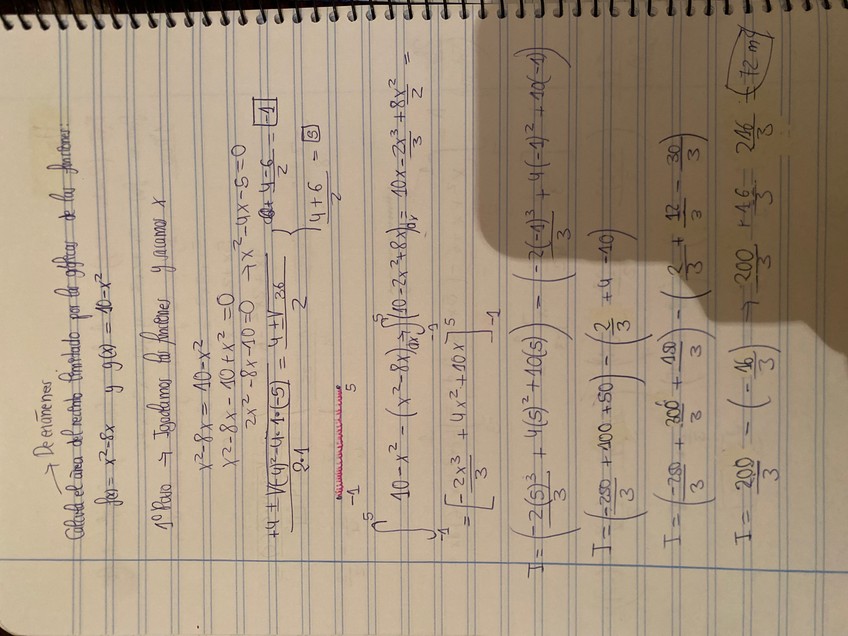 → De exámenes
Calcula el área del recinto limitado por las gráficas de las funciones:
f(x) = x²-8x y g(x) = 10-x²
1º Paso → Igualamos las funciones y sacamos x
x²-8x = 10-x²
x²-8x-10+x² = 0
2x²-8x-10=0 → x²-4x-5=0
+4 ± √(-4)²-4·1·(-5) / 2·1 = 4 ± √36 / 2 { 4-6 / 2 = -1
4+6 / 2 = 5
-1 5
∫₋₁⁵ 10-x²-(x²-8x) dx → ∫₋₁⁵ (10-2x²+8x) dx = 10x - 2x³/3 + 8x²/2 =
= [-2x³/3 + 4x² + 10x]₋₁⁵
I = (-2(5)³/3 + 4(5)² + 10(5)) - (-2(-1)³/3 + 4(-1)² + 10(-1))
I = (-250/3 + 100 + 50) - (2/3 + 4 - 10)
I = (-250/3 + 300/3 + 150/3) - (2/3 + 12/3 - 30/3)
I = 200/3 - (-16/3) → 200/3 + 16/3 = 216/3 = 72 m²